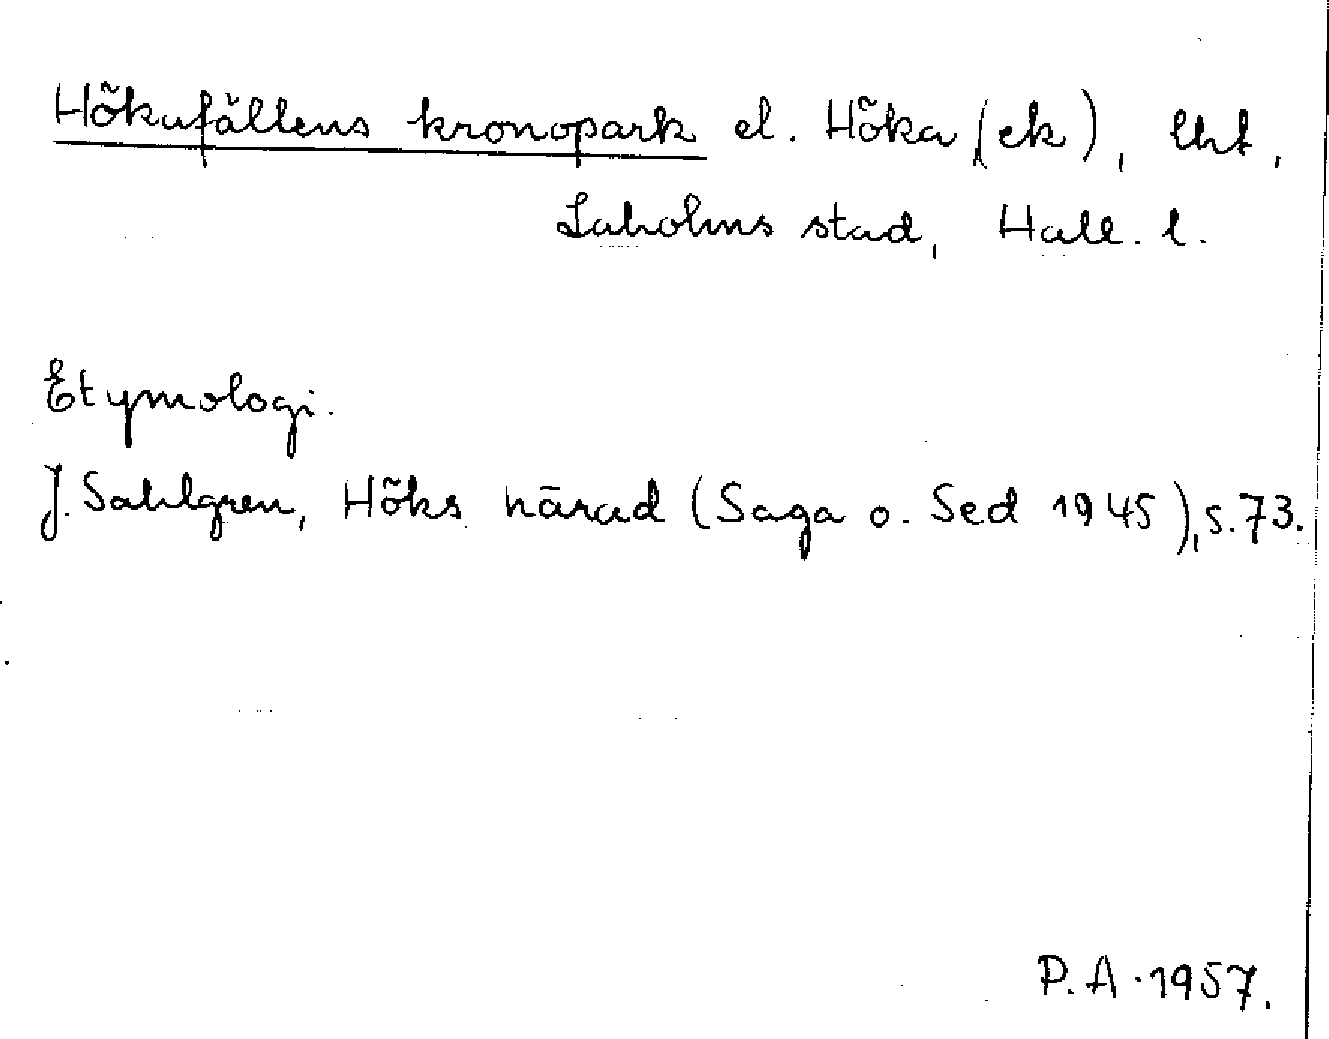 Hökafällens kronopark el. Höka (ek), lht,
Laholms stad, Hall. l.
Etymologi.
J. Sahlgren, Höks härad (Saga o. Sed 1945), s. 73.
P. A. 1957.